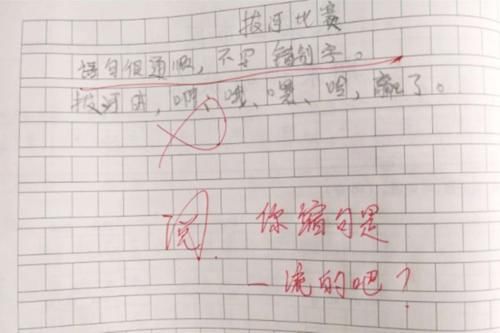 拔河比赛
语句但通顺，不写错别字。
拔河 嘿、哦、嘿、哈，赢了。
阅 你缩句是
一流的吧？